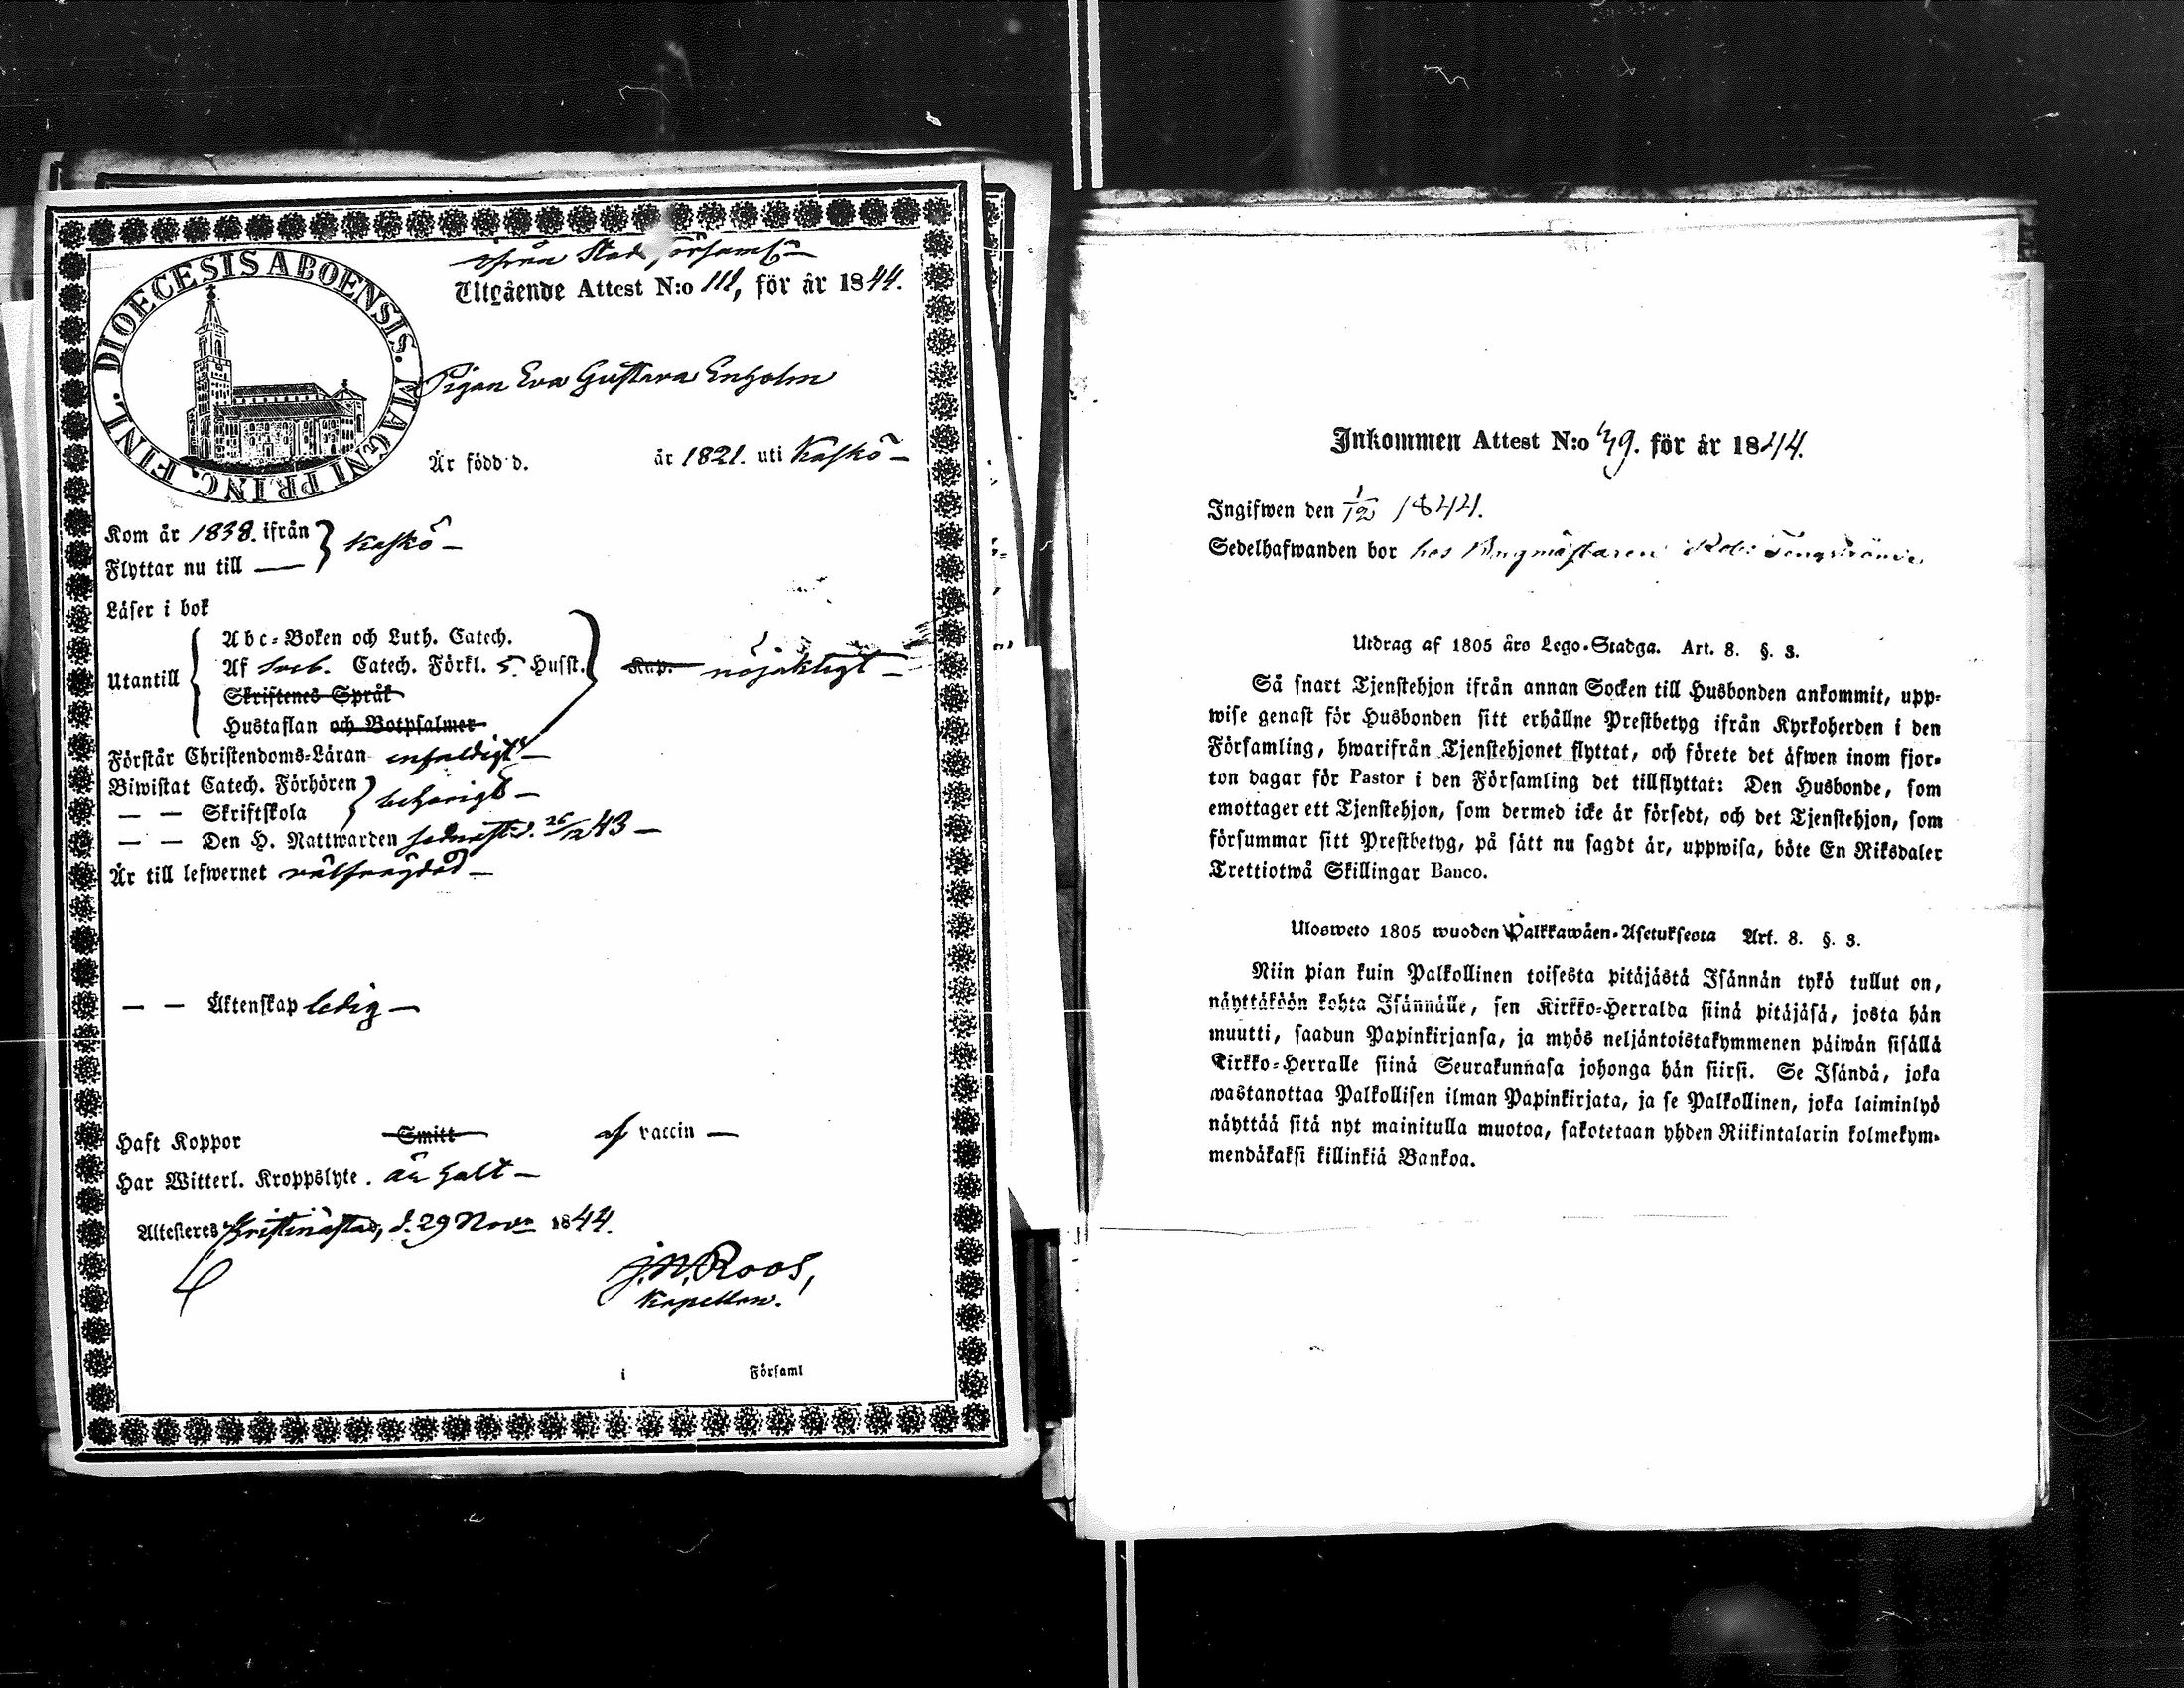 DIOECESIS ABOENSIS. MAGNI PRINC. FINL.
ifrån Stads församl.
Utgående Attest N:o 111, för år 1844.
Pigan Eva Gustava Enholm
Är född d. år 1821. uti Kaskö –
Kom år 1838. ifrån } Kaskö –
Flyttar nu till —
Läser i bok
Utantill
Abc-Boken och Luth. Catech.
Af Sveb. Catech. Förkl. 5. Husst. Kap. nöjaktigt –
Skriftenes Språk
Hustaflan och Botpsalmer
Förstår Christendoms-Läran enfaldigt –
Biwistat Catech. Förhören } behörigt –
— — Skriftskola
— — Den H. Nattwarden sednast d. 26/12 43 –
Är till lefwernet välfrägdad –
— — Äktenskap ledig –
Haft Koppor Smitt af vaccin —
Har Witterl. Kroppslyte. är halt –
Attesteres Kristinastad, d. 29 Nov. 1844.
J. N. Roos,
Kapellan.
i Församl
Inkommen Attest N:o 49. för år 1844.
Ingifwen den 1/12 1844.
Sedelhafwanden bor hos Tengström
Utdrag af 1805 års Lego-Stadga. Art. 8. §. 3.
Så snart Tjenstehjon ifrån annan Socken till Husbonden ankommit, upp-
wise genast för Husbonden sitt erhållne Prestbetyg ifrån Kyrkoherden i den
Församling, hwarifrån Tjenstehjonet flyttat, och förete det äfwen inom fjor-
ton dagar för Pastor i den Församling det tillflyttat: Den Husbonde, som
emottager ett Tjenstehjon, som dermed icke är försedt, och det Tjenstehjon, som
försummar sitt Prestbetyg, på sätt nu sagdt är, uppwisa, böte En Riksdaler
Trettiotwå Skillingar Banco.
Ulosweto 1805 wuoden Palkkawäen-Asetuksesta Art. 8. §. 3.
Niin pian kuin Palkollinen toisesta pitäjästä Isännän tykö tullut on,
näyttäköön kohta Isännälle, sen Kirkko-Herralda siinä pitäjäsä, josta hän
muutti, saadun Papinkirjansa, ja myös neljäntoistakymmenen päiwän sisällä
Kirkko-Herralle siinä Seurakunnasa johonga hän siirsi. Se Isändä, joka
wastanottaa Palkollisen ilman Papinkirjata, ja se Palkollinen, joka laiminlyö
näyttää sitä nyt mainitulla muotoa, sakotetaan yhden Riikintalarin kolmekym-
mendäkaksi killinkiä Bankoa.